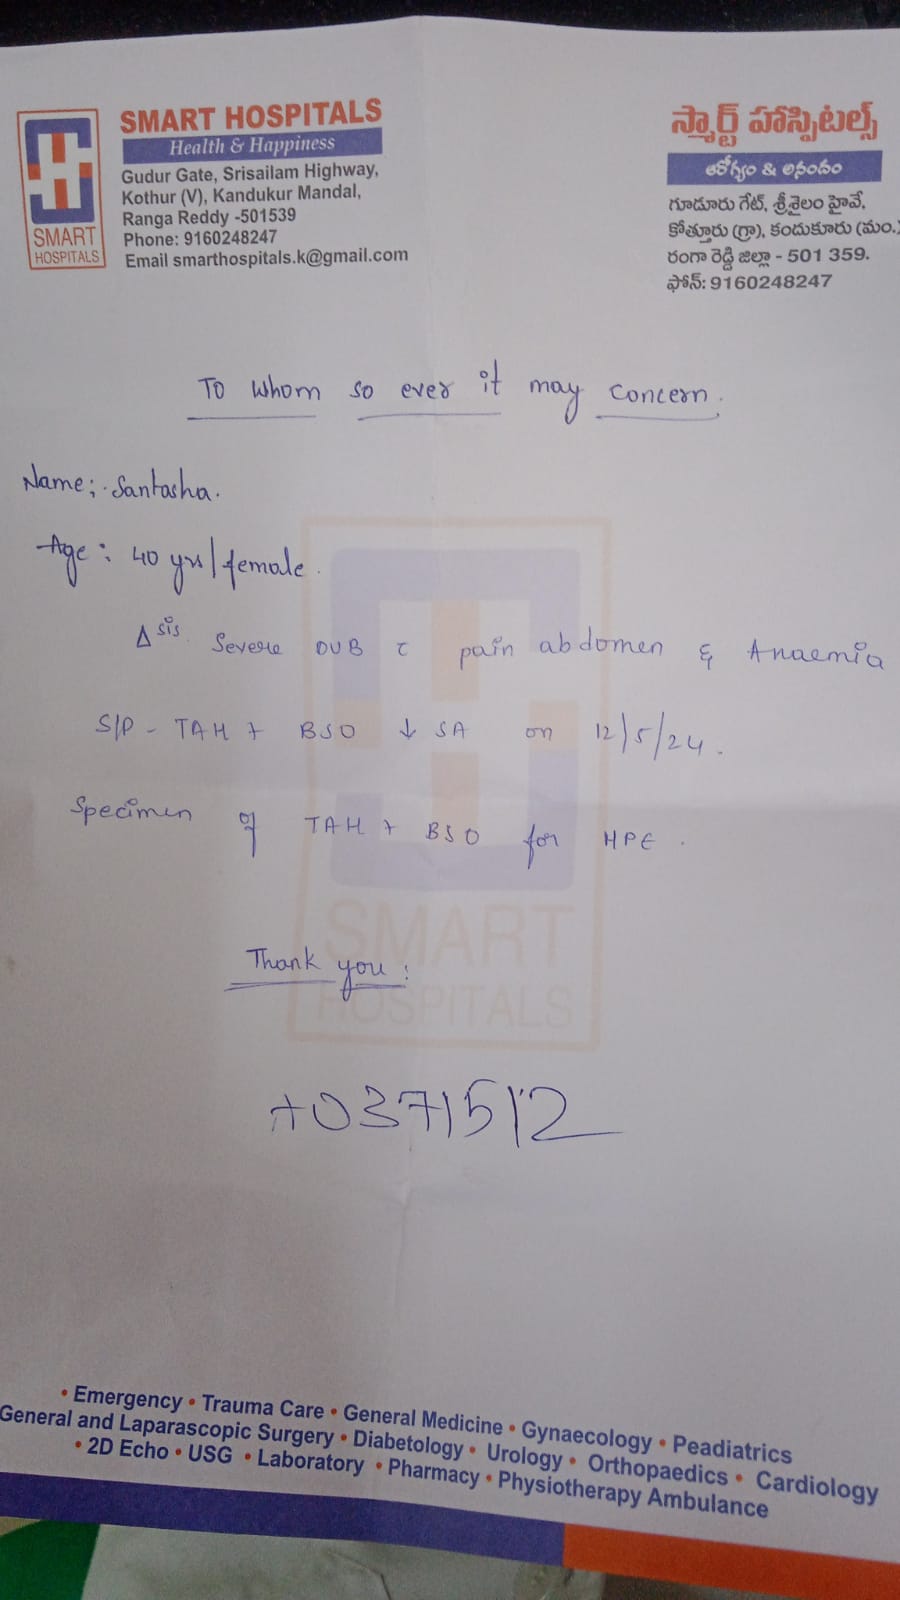 SMART HOSPITALS
Health & Happiness
Gudur Gate, Srisailam Highway,
Kothur (V), Kandukur Mandal,
Ranga Reddy -501539
Phone: 9160248247
Email smarthospitals.k@gmail.com
SMART
HOSPITALS
స్మార్ట్ హాస్పిటల్స్
ఆరోగ్యం & ఆనందం
గూడూరు గేట్, శ్రీశైలం హైవే,
కోత్తూరు (గ్రా), కందుకూరు (మం.)
రంగా రెడ్డి జిల్లా - 501 359.
ఫోన్: 9160248247
To whom so ever it may concern.
Name: Santosha.
Age: 40 yrs/female.
Δsis Severe DUB c pain abdomen & Anaemia
S/P - TAH + BSO ↓ SA on 12/5/24.
Specimen of TAH + BSO for HPE.
Thank you:
SMART
HOSPITALS
• Emergency • Trauma Care • General Medicine • Gynaecology • Peadiatrics
General and Laparascopic Surgery • Diabetology • Urology • Orthopaedics • Cardiology
• 2D Echo • USG • Laboratory • Pharmacy • Physiotherapy Ambulance